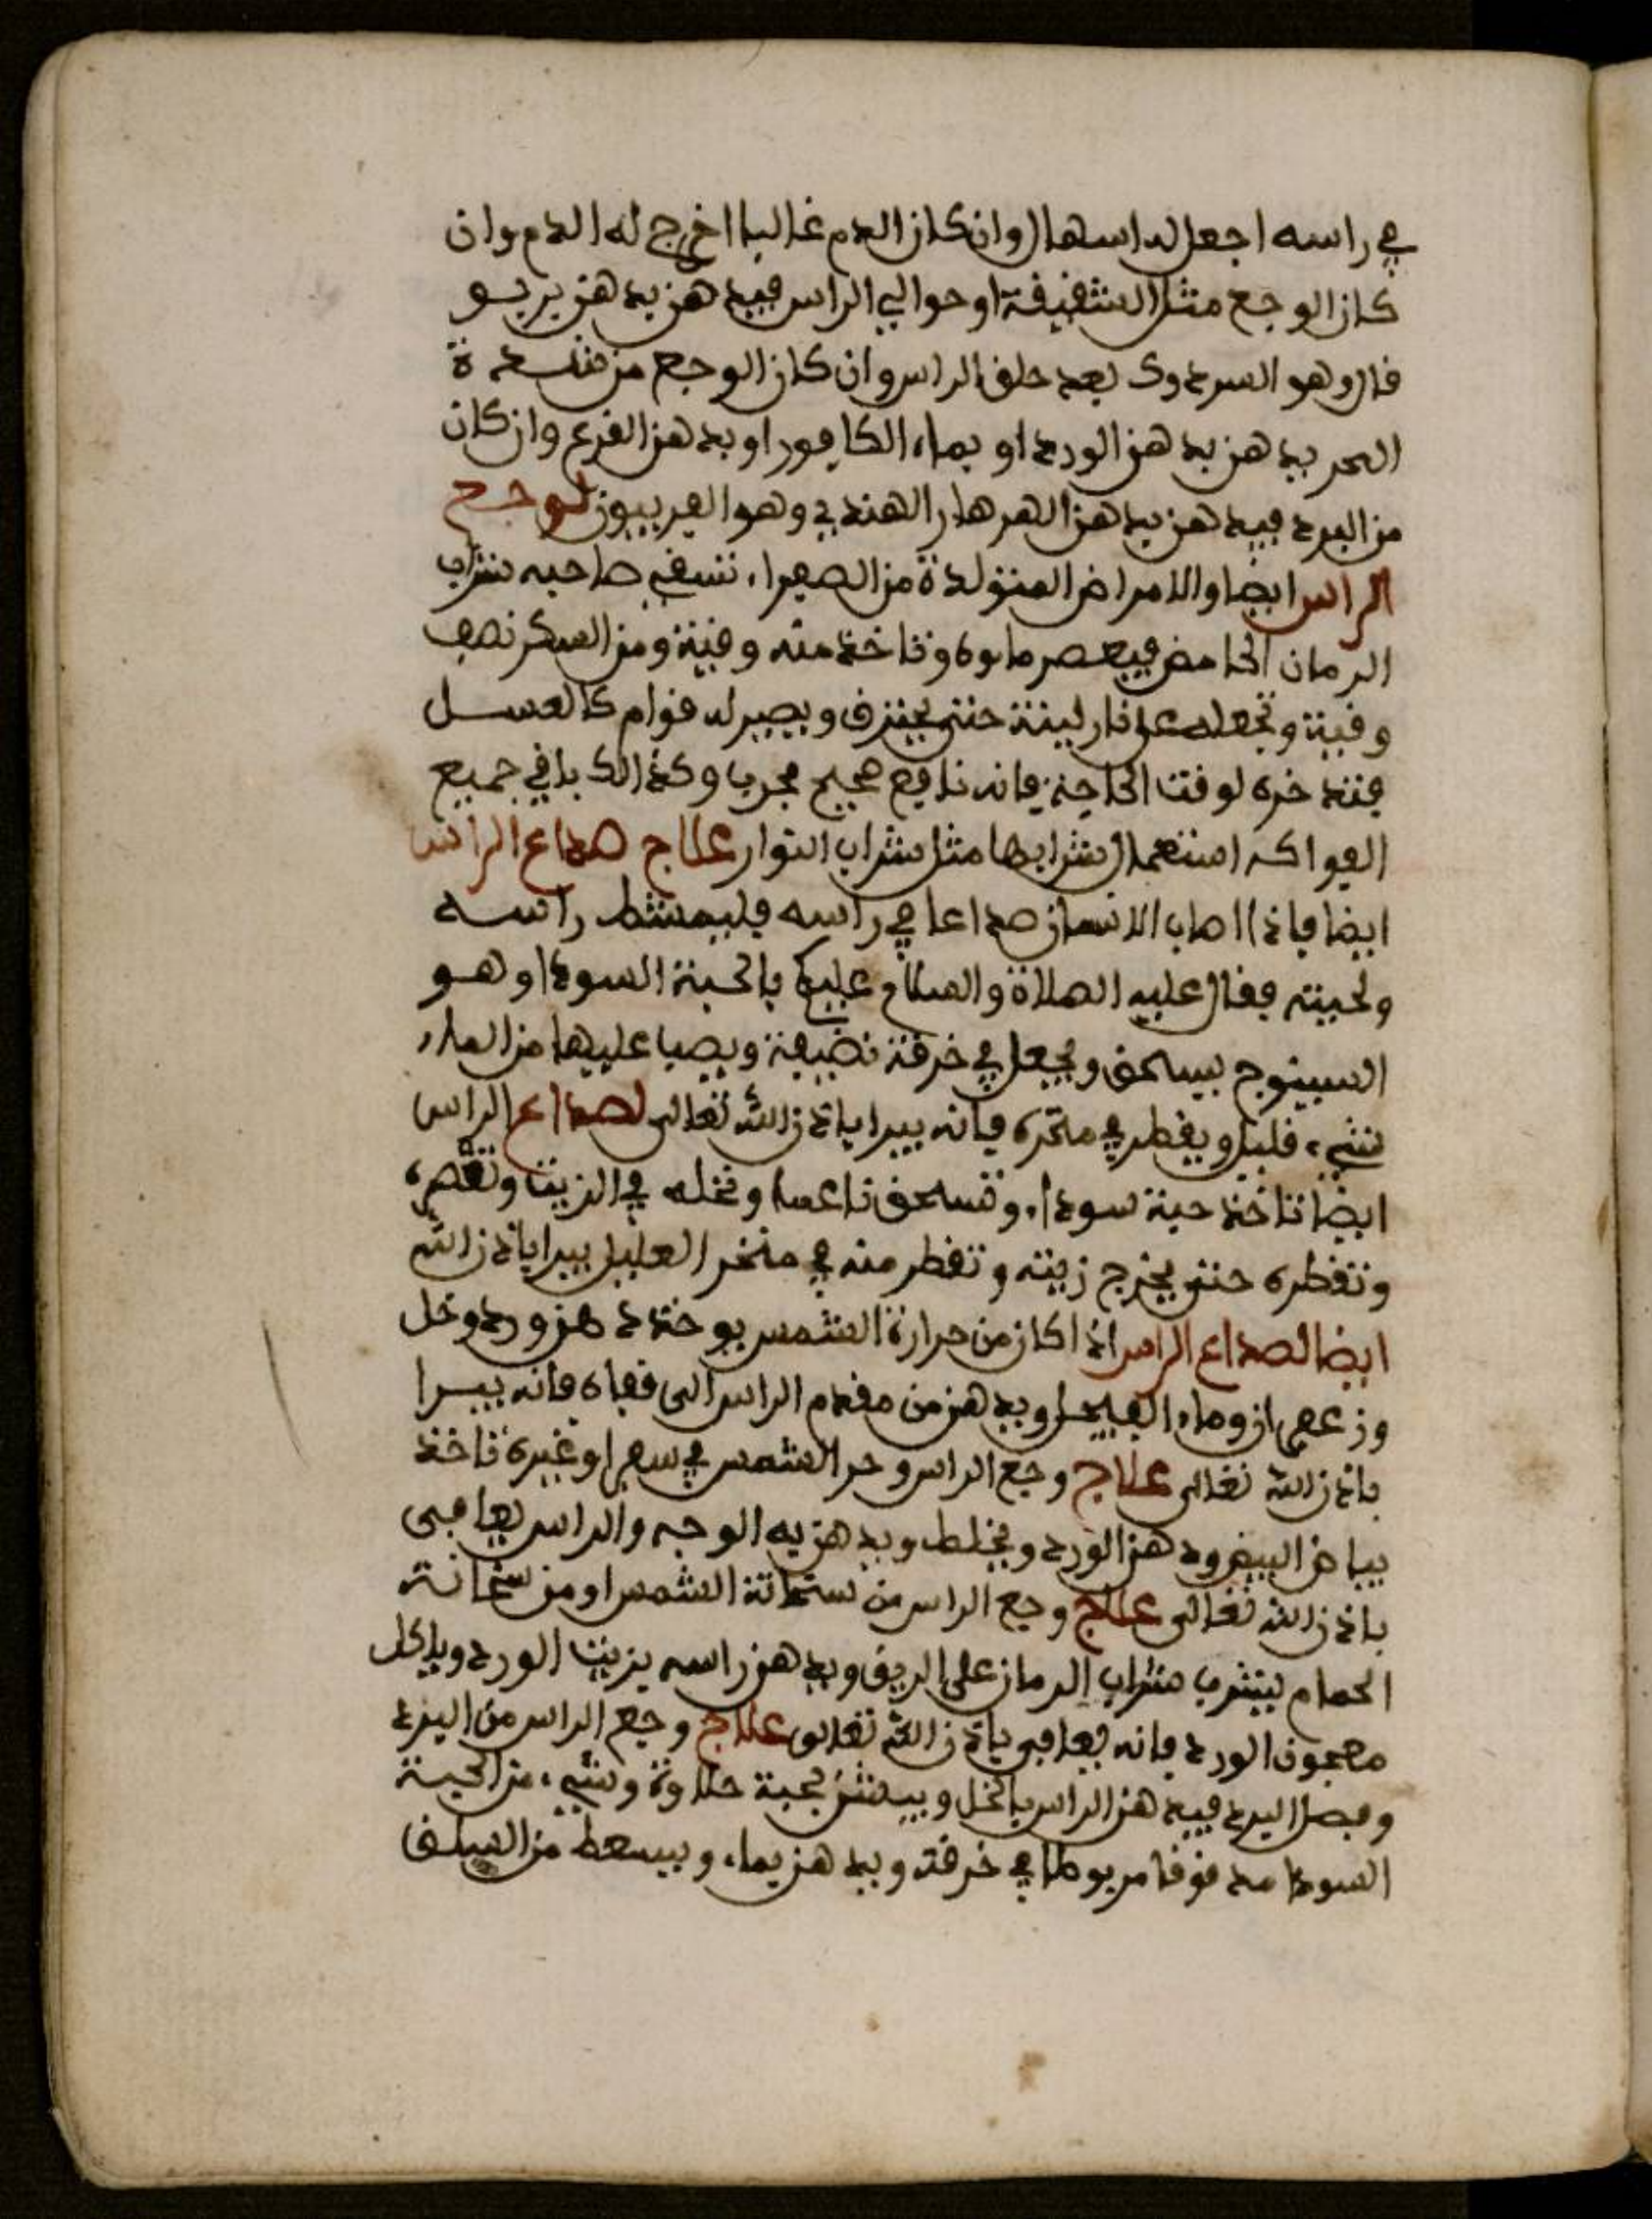 في راسه اجعل له اسهال وان كان الدم غالبا اخرج له الدم وان
كان الوجع مثل الشقيقة او حوالي الراس فيدهن بدهن بربيو
قال وهو السردوك بعد حلق الراس وان كان الوجع من شدة
الحر يدهن بدهن الورد او بماء الكافور او بدهن القرع وان كان
من البرد فيدهن بدهن الهرهار الهندي وهو الفربيون لوجع
الراس ايضا والامراض المتولدة من الصفراء تسقي صاحبه شراب
الرمان الحامض فيعصر ماوه وتاخذ منه وقية ومن السكر نصف
وقية وتجعله على نار لينة حتى يحترق ويصير له قوام كالعسل
فتدخره لوقت الحاجة فانه نافع صحيح مجرب وكذالك باقي جميع
الفواكه استعمال شرابها مثل شراب النوار علاج صداع الراس
ايضا فاذا اصاب الانسان صداعا في راسه فليمشط راسه
ولحيته فقال عليه الصلاة والسلام عليكم بالحبة السوداء وهو
السينوج يسحق ويجعل في خرقة نضيفة ويصب عليها من الماء
شيء قليل ويقطر في منخره فانه يبرا باذن الله تعالى لصداع الراس
ايضا تاخذ حبة سوداء وتسحق ناعما وتخله في الزيت وتعصره
وتقطره حتى يخرج زيته وتقطر منه في منخر العليل يبرا باذن الله
ايضا لصداع الراس اذا كان من حرارة الشمس يوخذ دهن ورد وخل
وزعفران وماء الفيجل ويدهن من مقدم الراس الى قفاه فانه يبرا
باذن الله تعالى علاج وجع الراس وحر الشمس في سفر او غيره تاخذ
بياض البيض ودهن الورد ويخلط ويدهن به الوجه والراس يعافى
باذن الله تعالى علاج وجع الراس من سخانة الشمس او من سخانة
الحمام يشرب شراب الرمان على الريق ويدهن راسه بزيت الورد وياكل
معجون الورد فانه يعافى باذن الله تعالى علاج وجع الراس من البرد
وفصل البرد فيدهن الراس بالخل ويبخر بحبة حلاوة وشيء من الحبة
السوداء مدقوقا مربوطا في خرقة ويدهن بماء ويسعط من السلق